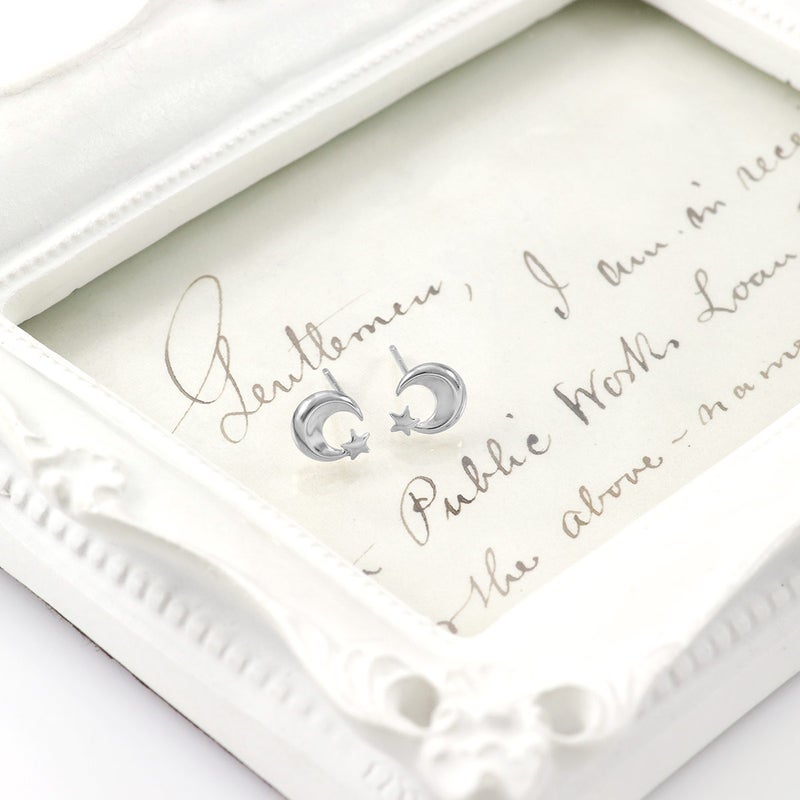 Gentlemen, I am in
Public Works Loan
the above-name